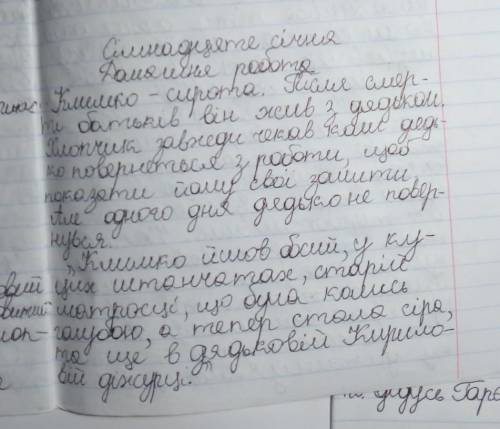 Сімнадцяте січня
Домашня робота
Климко - сирота. Після смер-
ти батьків він жив з дядьком.
Хлопчик завжди чекав коли дядь-
ко повернеться з роботи, щоб
показати йому свої зошити.
Але одного дня дядько не повер-
нувся.
"Климко йшов босий, у ку-
ций штанчатах, старій
матросці, що була колись
голубою, а тепер стала сіра,
та ще в дядьковій Кирило-
вій діжурці."
дидусь Гарб